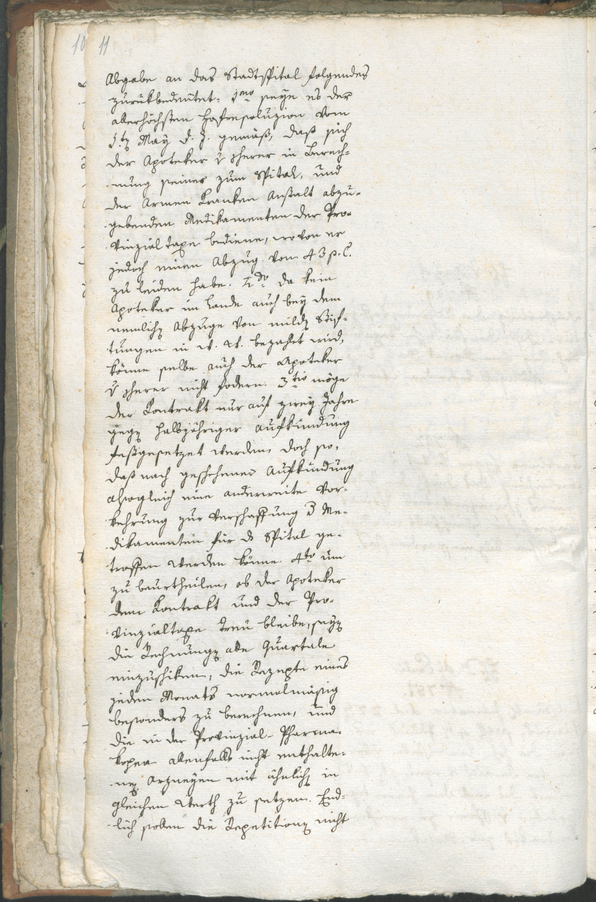 10 11
Abgabe an das Stadtspital folgendes
zurükbedeutet: 1mo seye es der
allerhöchsten Hofresoluzion vom
May d. J. gemäß, daß sich
der Apoteker Scherer in Berech-
nung seiner zum Spital, und
der Armen Kranken Anstalt abzu-
gebenden Medikamenten der Pro-
vinzialtaxe bediene, wovon er
jedoch einen Abzug vom 43 p. C.
zu leiden habe. 2do da kein
Apoteker im Lande auch bey dem
nemlich Abzuge von milden Stif-
tungen in bezahlt wird,
könne selbe auch der Apoteker
Scherer nicht fodern. 3tio möge
der Kontrakt nur auf zwey Jahre
gegen halbjähriger Aufkündung
festgesetzet werden, doch so,
daß nach geschehener Aufkündung
alsogleich eine anderweite Vor-
kehrung zur Verschaffung d Me-
dikamenten für d Spital ge-
troffen werden könne. 4to um
zu beurtheilen, ob der Apoteker
dem Kontrakt und der Pro-
vinzialtaxe treu bleibe, seyen
die Rechnungen alle Quartale
einzuschiken, die Rezepte eines
jeden Monats normalmäsig
besonders zu berechnen, und
die in der Provinzial-Pharma-
kopea allenfalls nicht enthalte-
nen Arzneyen mit ähnlich in
gleichen Werth zu setzen. End-
lich sollen die Repetitionen nicht